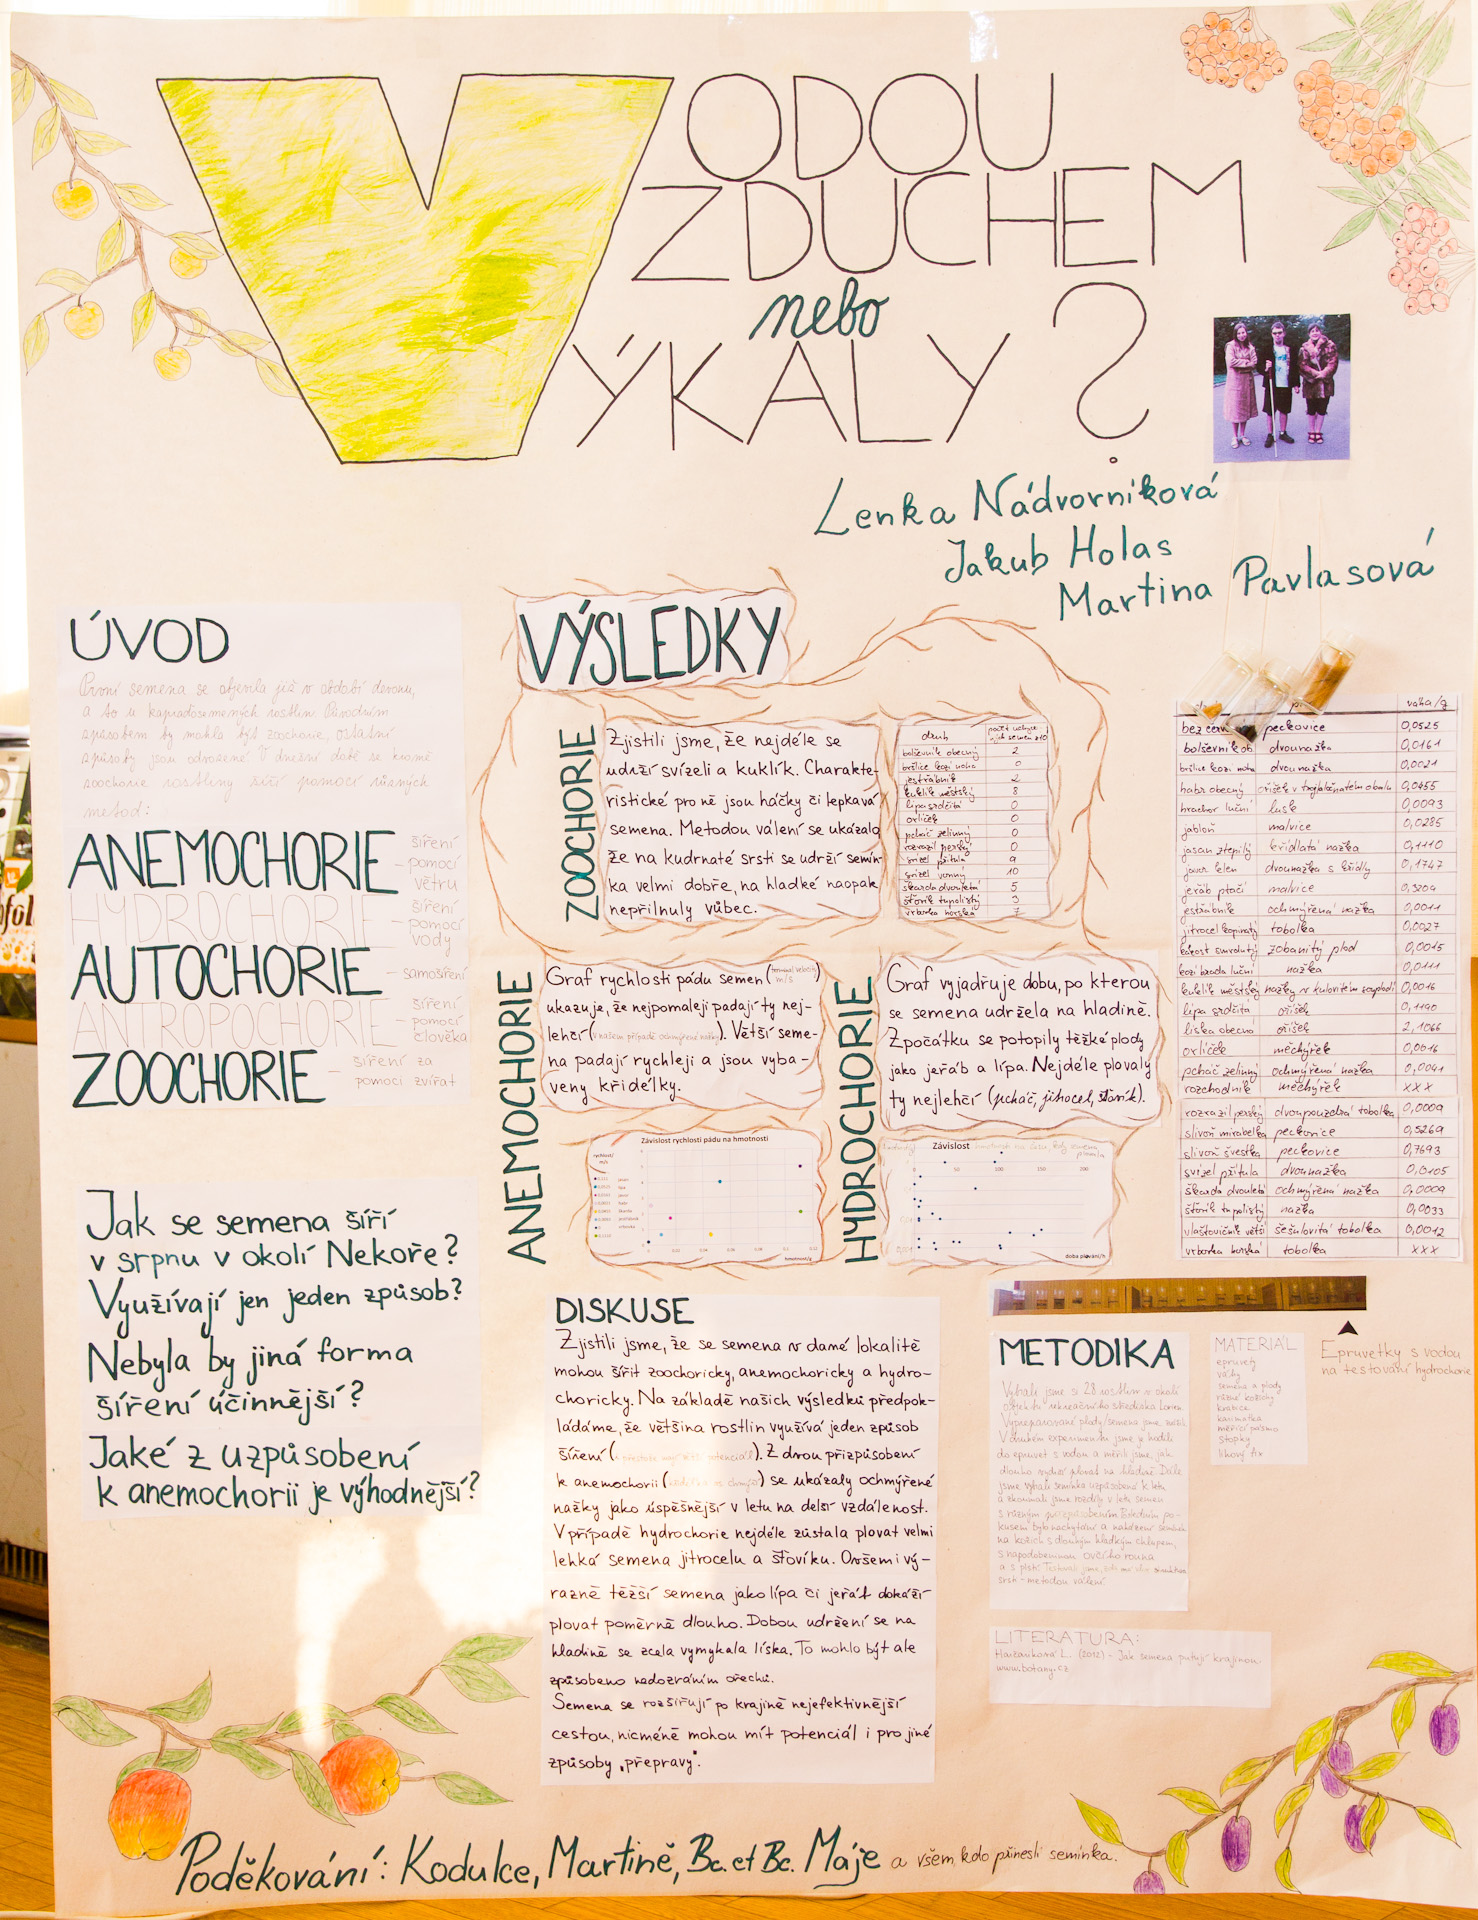 VODOU
VZDUCHEM
nebo
VÝKALY?
Lenka Nádvorníková
Jakub Holas
Martina Pavlasová
ÚVOD
První semena se objevila již v období devonu,
a to u kapraďosemenných rostlin. Původním
způsobem by mohla být zoochorie, ostatní
způsoby jsou odvozené. V dnešní době se kromě
zoochorie rostliny šíří pomocí různých
metod:
ANEMOCHORIE - šíření pomocí větru
HYDROCHORIE - šíření pomocí vody
AUTOCHORIE - samošíření
ANTROPOCHORIE - šíření pomocí člověka
ZOOCHORIE - šíření za pomoci zvířat
Jak se semena šíří
v srpnu v okolí Nekoře?
Využívají jen jeden způsob?
Nebyla by jiná forma
šíření účinnější?
Jaké z uzpůsobení
k anemochorii je výhodnější?
VÝSLEDKY
ZOOCHORIE
Zjistili jsme, že nejdéle se
udrží svízeli a kuklík. Charakte-
ristické pro ně jsou háčky či lepkavá
semena. Metodou válení se ukázalo
že na kudrnaté srsti se udrží semín-
ka velmi dobře, na hladké naopak
nepřilnuly vůbec.
druh
bolševník obecný 2
bršlice kozí noha 0
jestřábník 2
kuklík městský 8
lípa srdčitá 0
orlíček 0
pcháč zelinný 0
rozrazil perský 0
svízel přítula 9
svízel vonný 10
škarda dvouletá 5
šťovík tupolistý 3
vrbovka horská 7
ANEMOCHORIE
Graf rychlosti pádu semen (terminal velocity m/s)
ukazuje, že nejpomaleji padají ty nej-
lehčí (v našem případě ochmýřené nažky). Větší seme-
na padají rychleji a jsou vyba-
veny křidélky.
Závislost rychlosti pádu na hmotnosti
rychlost/
m/s
hmotnost/g
HYDROCHORIE
Graf vyjadřuje dobu, po kterou
se semena udržela na hladině.
Zpočátku se potopily těžké plody
jako jeřáb a lípa. Nejdéle plovaly
ty nejlehčí (pcháč, jitrocel, šťovík).
Závislost
0 50 100 150 200
doba plování/h
váha/g
bez čern peckovice 0,0525
bolševník ob dvounažka 0,0161
bršlice kozí noha dvounažka 0,0021
habr obecný oříšek v trojlaločnatém obalu 0,0455
hrachor luční lusk 0,0093
jabloň malvice 0,0285
jasan ztepilý křídlatá nažka 0,1110
javor klen dvounažka s křídly 0,1747
jeřáb ptačí malvice 0,3204
jestřábník ochmýřená nažka 0,0011
jitrocel kopinatý tobolka 0,0027
kakost smrdutý zobanitý plod 0,0015
kozí brada luční nažka 0,0111
kuklík městský nažky v kulovitém souplodí 0,0016
lípa srdčitá oříšek 0,1190
líska obecná oříšek 2,1066
orlíček měchýřek 0,0016
pcháč zelinný ochmýřená nažka 0,0041
rozchodník měchýřek xxx
rozrazil perský dvoupouzdrá tobolka 0,0009
slivoň mirabelka peckovice 0,5269
slivoň švestka peckovice 0,7693
svízel přítula dvounažka 0,0105
škarda dvouletá ochmýřená nažka 0,0009
šťovík tupolistý nažka 0,0033
vlaštovičník větší šešulovitá tobolka 0,0012
vrbovka horská tobolka xxx
DISKUSE
Zjistili jsme, že se semena v dané lokalitě
mohou šířit zoochoricky, anemochoricky a hydro-
choricky. Na základě našich výsledků předpok-
ládáme, že většina rostlin využívá jeden způsob
šíření (i přestože mají větší potenciál). Z dvou přizpůsobení
k anemochorii (křidélka vs chmýří) se ukázaly ochmýřené
nažky jako úspěšnější v letu na delší vzdálenost.
V případě hydrochorie nejdéle zůstala plovat velmi
lehká semena jitrocelu a šťovíku. Ovšem i vý-
razně těžší semena jako lípa či jeřáb dokáží
plovat poměrně dlouho. Dobou udržení se na
hladině se zcela vymykala líska. To mohlo být ale
způsobeno nedozráním ořechů.
Semena se rozšiřují po krajině nejefektivnější
cestou, nicméně mohou mít potenciál i pro jiné
způsoby „přepravy".
METODIKA
Vybrali jsme si 28 rostlin v okolí
V druhém experimentu jsme je hodili
do epruvet s vodou a měřili jsme, jak
dlouho vydrží plovat na hladině. Dále
jsme vybrali semínka uzpůsobená k letu
a zkoumali jsme rozdíly v letu semen
s různým přizpůsobením. Posledním po-
kusem bylo nachytání a nahození semínek
na kožich s dlouhým hladkým chlupem,
s napodobeninou ovčího rouna
srsti - metodou válení
MATERIÁL
epruvety
váhy
semena a plody
různé kožichy
krabice
karimatka
měřící pásmo
stopky
Epruvetky s vodou
na testování hydrochorie
LITERATURA:
(2012) - Jak semena putují krajinou
www.botany.cz
Poděkování: Kodulce, Martině, Bc. et Bc. Máje a všem, kdo přinesli semínka.